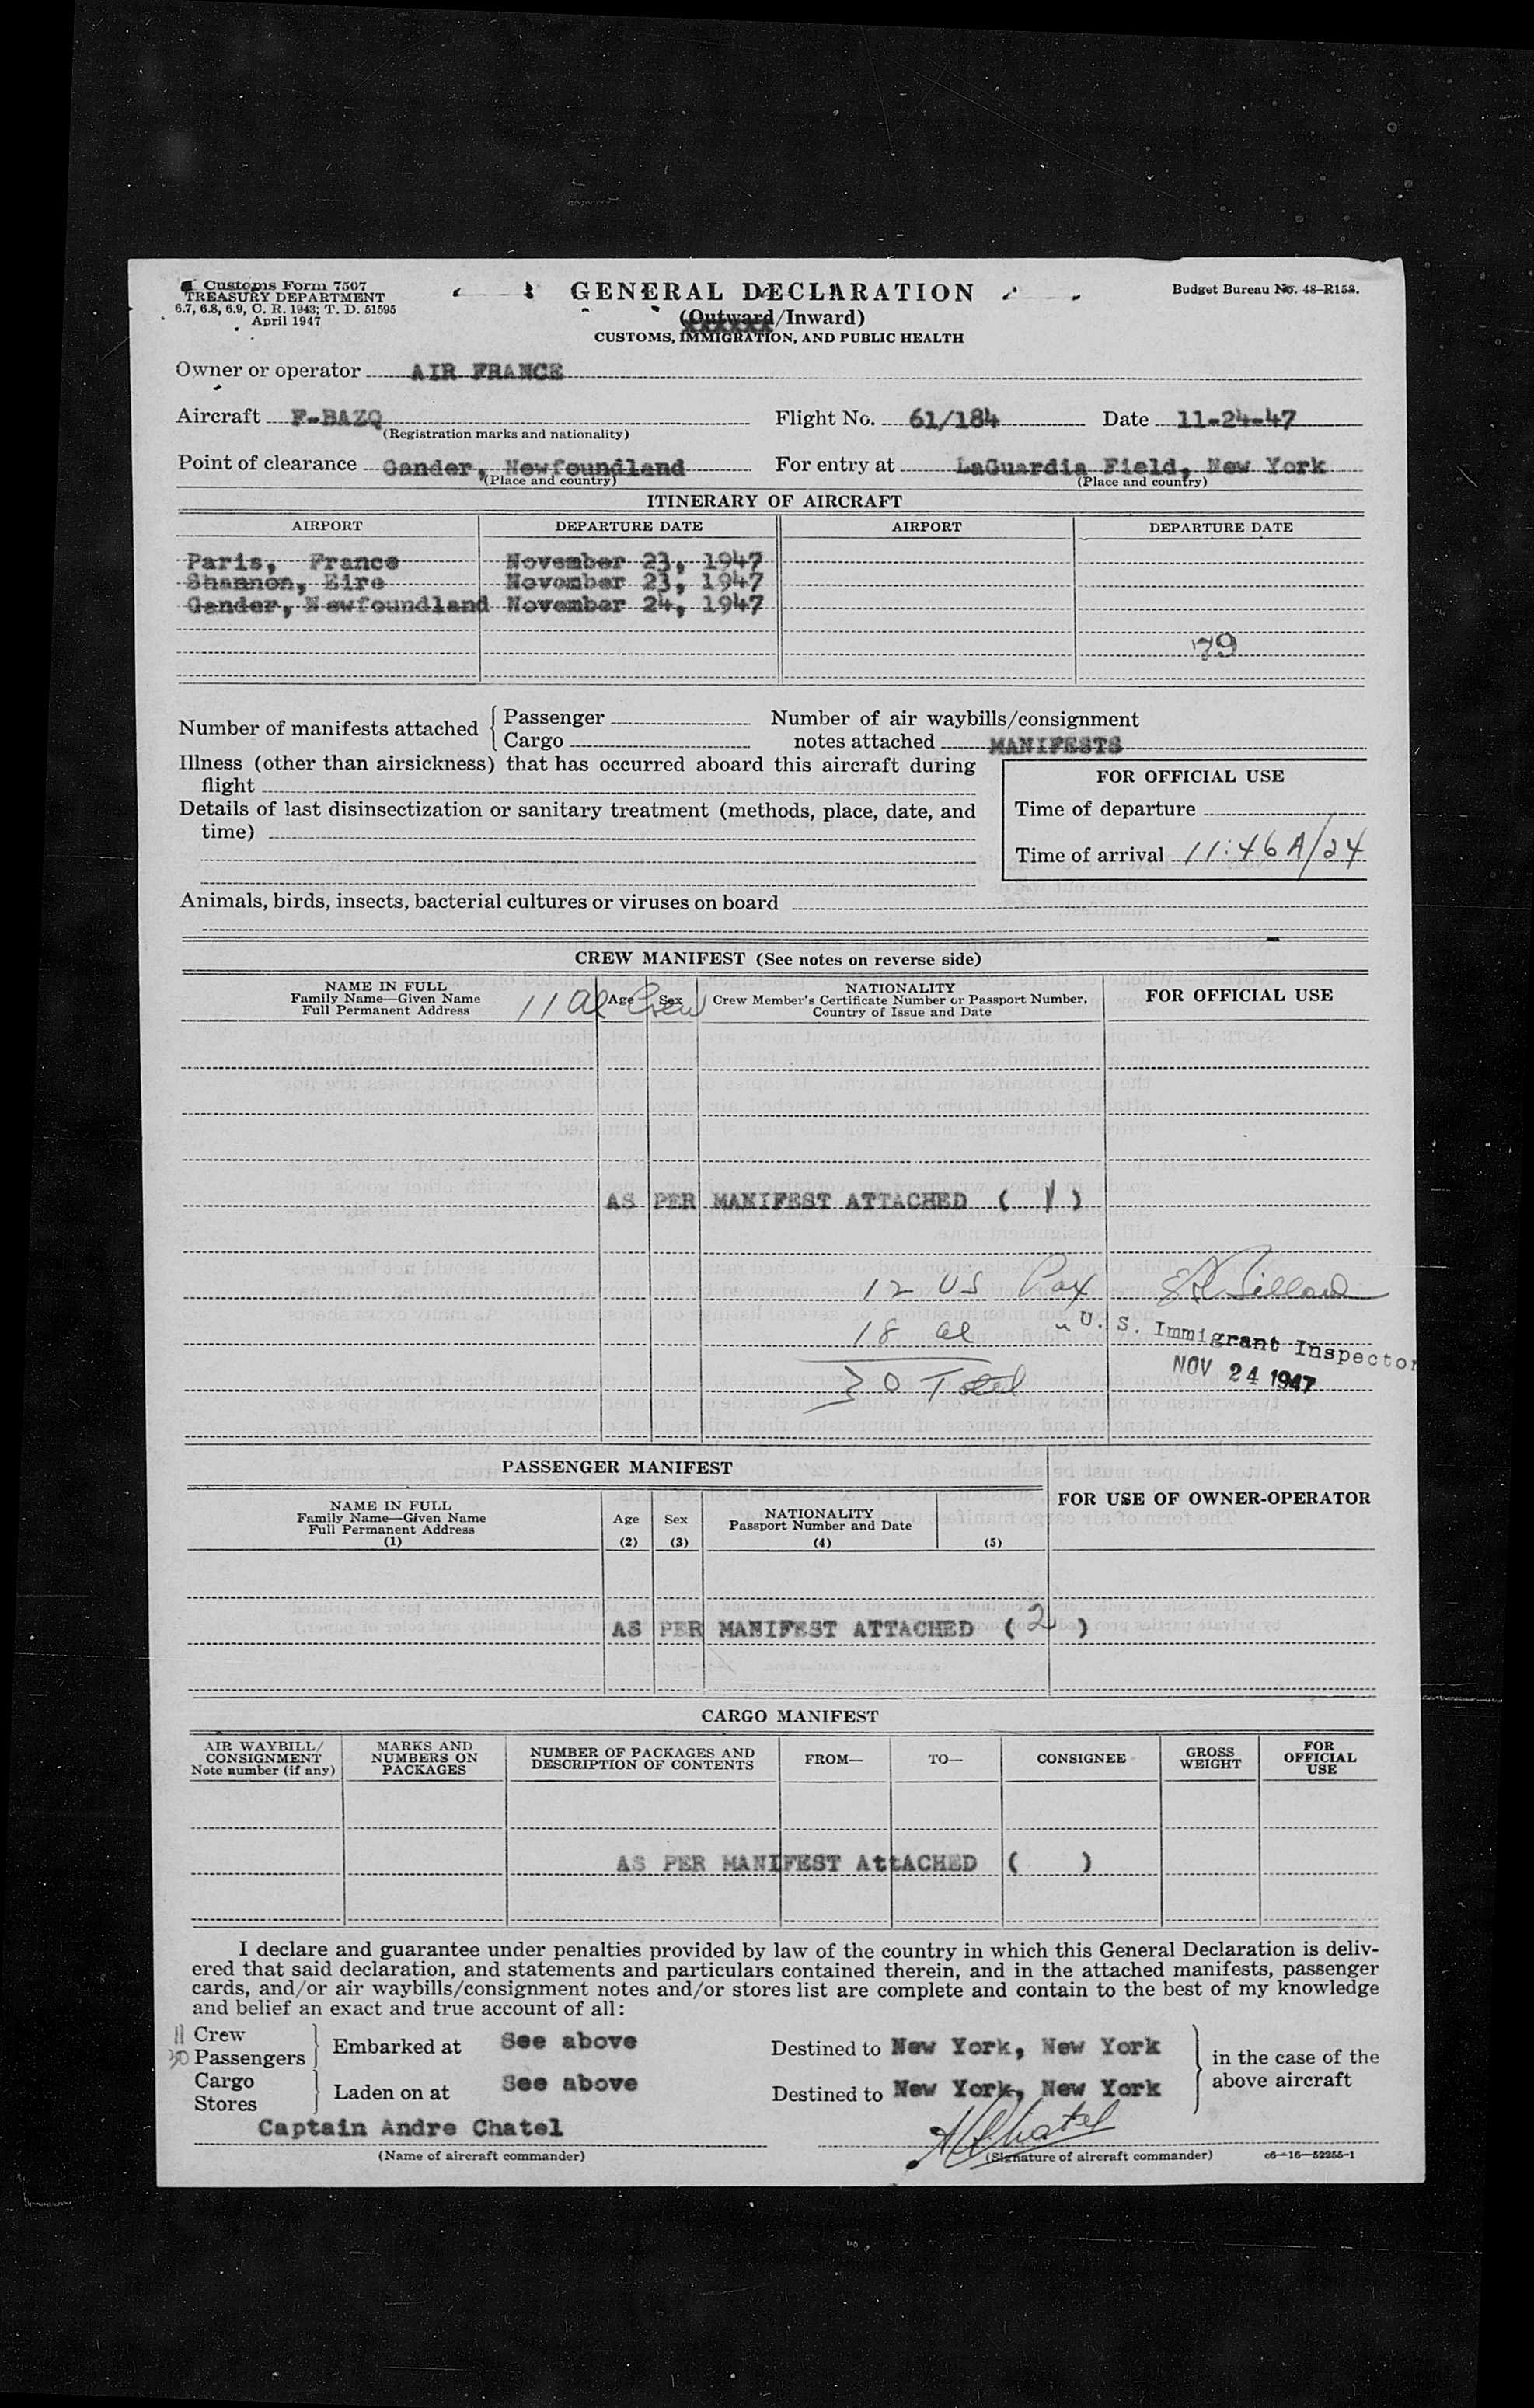 Customs Form 7507
TREASURY DEPARTMENT
6.7, 6.8, 6.9, C. R. 1943; T. D. 51595
April 1947
GENERAL DECLARATION
(Outward/Inward)
CUSTOMS, IMMIGRATION, AND PUBLIC HEALTH
Budget Bureau No. 48-R158.
Owner or operator AIR FRANCE
Aircraft F-BAZQ Flight No. 61/184 Date 11-24-47
(Registration marks and nationality)
Point of clearance Gander, Newfoundland For entry at LaGuardia Field, New York
(Place and country) (Place and country)
ITINERARY OF AIRCRAFT
AIRPORT DEPARTURE DATE AIRPORT DEPARTURE DATE
Paris, France November 23, 1947
Shannon, Eire November 23, 1947
Gander, Newfoundland November 24, 1947
79
Number of manifests attached { Passenger Number of air waybills/consignment
Cargo notes attached MANIFESTS
Illness (other than airsickness) that has occurred aboard this aircraft during
flight
Details of last disinsectization or sanitary treatment (methods, place, date, and
time)
FOR OFFICIAL USE
Time of departure
Time of arrival 11:46 A/24
Animals, birds, insects, bacterial cultures or viruses on board
CREW MANIFEST (See notes on reverse side)
NAME IN FULL
Family Name—Given Name
Full Permanent Address
11 al Crew
Age Sex
NATIONALITY
Crew Member's Certificate Number or Passport Number,
Country of Issue and Date
FOR OFFICIAL USE
AS PER MANIFEST ATTACHED ( 1 )
12 US Pax
18 al "
30 Total
U. S. Immigrant Inspector
NOV 24 1947
PASSENGER MANIFEST
FOR USE OF OWNER-OPERATOR
NAME IN FULL
Family Name—Given Name
Full Permanent Address
(1)
Age
(2)
Sex
(3)
NATIONALITY
Passport Number and Date
(4) (5)
AS PER MANIFEST ATTACHED ( 2 )
CARGO MANIFEST
AIR WAYBILL/
CONSIGNMENT
Note number (if any)
MARKS AND
NUMBERS ON
PACKAGES
NUMBER OF PACKAGES AND
DESCRIPTION OF CONTENTS
FROM—
TO—
CONSIGNEE
GROSS
WEIGHT
FOR
OFFICIAL
USE
AS PER MANIFEST AttACHED ( )
I declare and guarantee under penalties provided by law of the country in which this General Declaration is deliv-
ered that said declaration, and statements and particulars contained therein, and in the attached manifests, passenger
cards, and/or air waybills/consignment notes and/or stores list are complete and contain to the best of my knowledge
and belief an exact and true account of all:
11 Crew
30 Passengers
Embarked at See above Destined to New York, New York
Cargo
Stores
Laden on at See above Destined to New York, New York
in the case of the
above aircraft
Captain Andre Chatel
(Name of aircraft commander)
A Chatel
(Signature of aircraft commander)
c6—16—52255-1